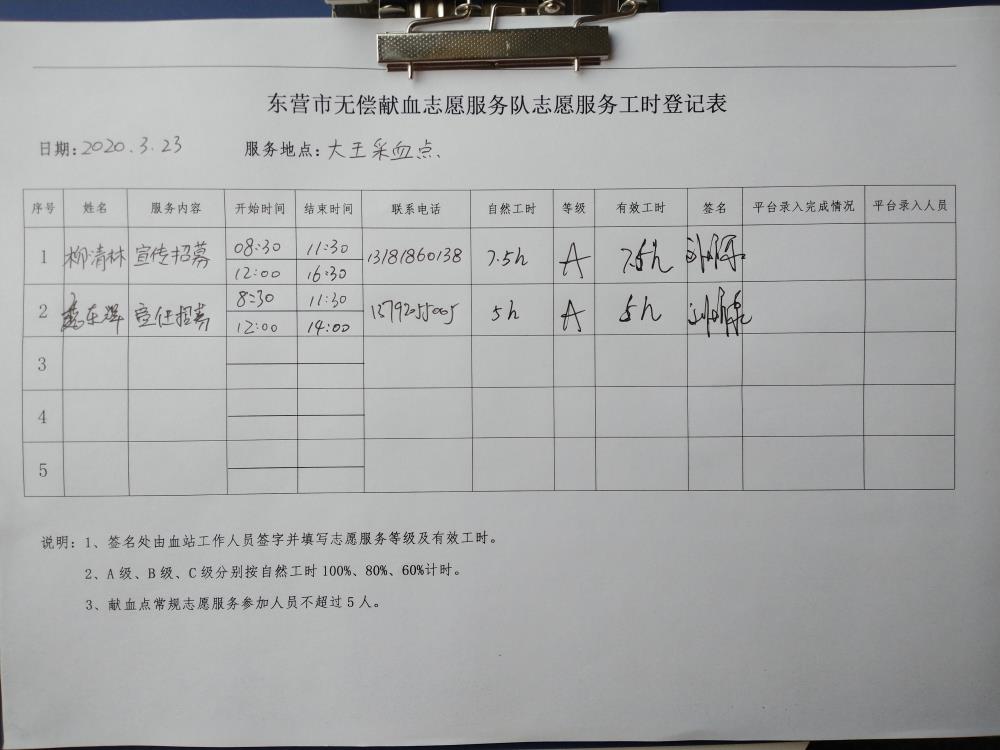 东营市无偿献血志愿服务队志愿服务工时登记表
日期:2020.3.23 服务地点:大王采血点
序号 姓名 服务内容 开始时间 结束时间 联系电话 自然工时 等级 有效工时 签名 平台录入完成情况 平台录入人员
1 柳清林 宣传招募 08:30 11:30 13181860138 7.5h A 7.5h
12:00 16:30
2 东辉 宣传招募 8:30 11:30 13792055005 5h A 5h
12:00 14:00
3
4
5
说明:1、签名处由血站工作人员签字并填写志愿服务等级及有效工时。
2、A级、B级、C级分别按自然工时100%、80%、60%计时。
3、献血点常规志愿服务参加人员不超过5人。